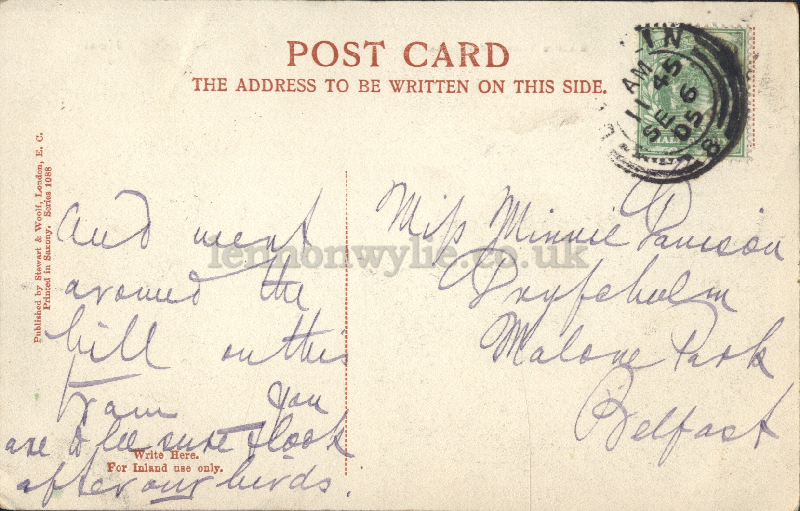 POST CARD
THE ADDRESS TO BE WRITTEN ON THIS SIDE.
IN
AM
11 45
SE 6
05
8
HALF
Published by Stewart & Woolf, London, E. C.
Printed in Saxony. Series 1088
And went
around the
hill on this
Tram You
are to be sure & look
after our birds.
Write Here.
For Inland use only.
Miss Minnie
Dryfeholm
Malone Park
Belfast
lennonwylie.co.uk